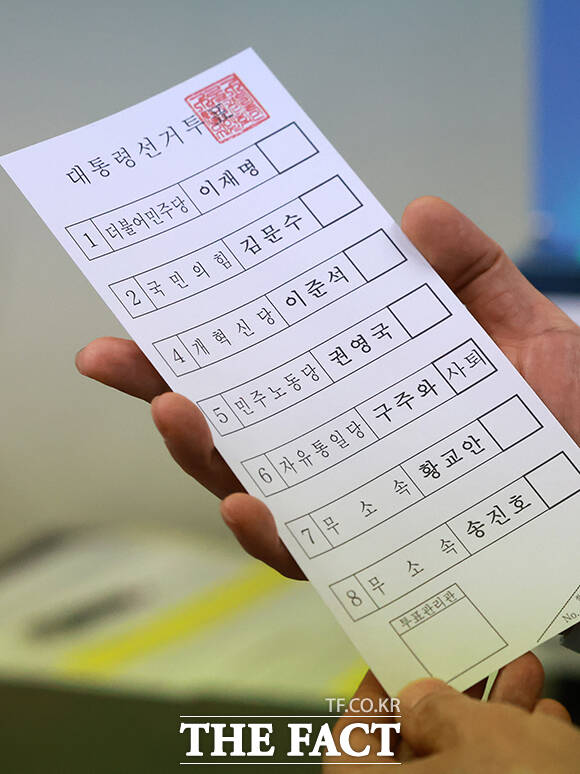 대통령선거투표
1 더불어민주당 이재명
2 국민의힘 김문수
4 개혁신당 이준석
5 민주노동당 권영국
6 자유통일당 구주와 사퇴
7 무 소 속 황교안
8 무 소 속 송진호
투표관리관
No.
TF.CO.KR
THE FACT